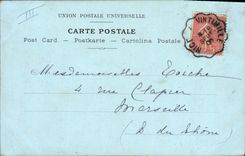 UNION POSTALE UNIVERSELLE
CARTE POSTALE
Post Card. — Postkarte — Cartolina Postale
NICE VINTIMILLE
Mesdemoiselles
4 rue Clapier
Marseille
(B. du Rhône)